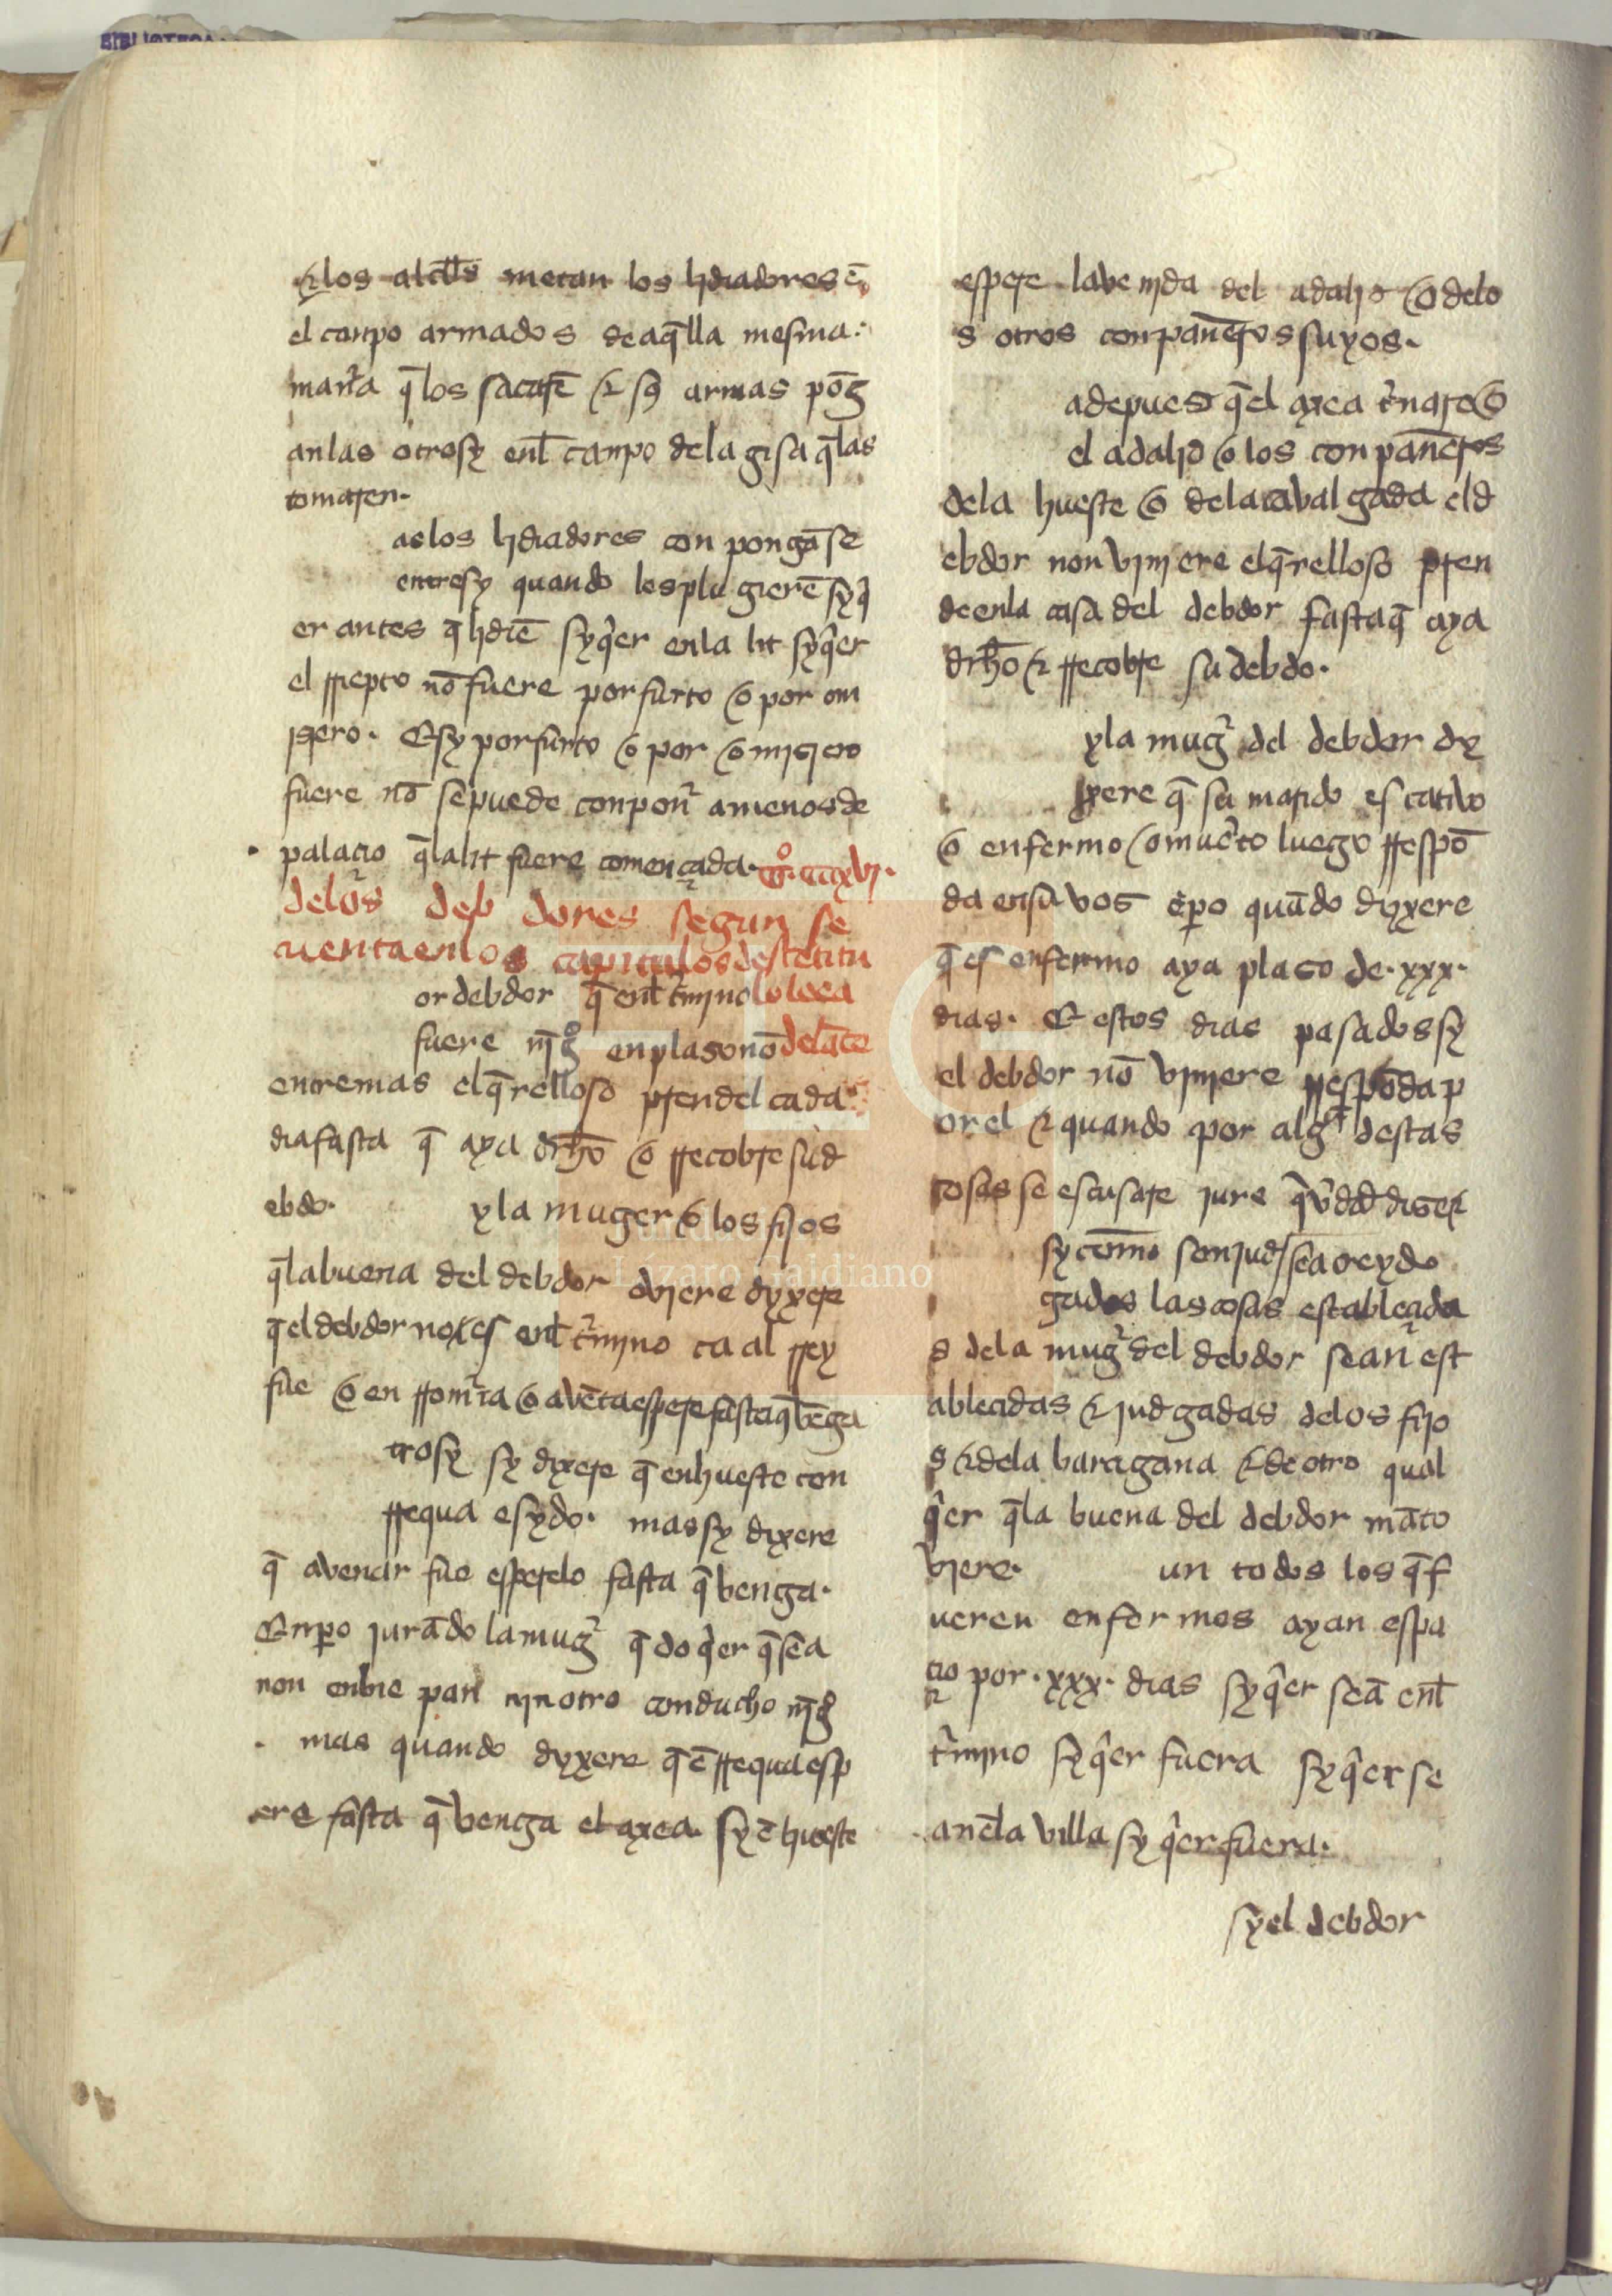 BIBLIOTECA
⁊ los alcłłs metan los lidiadores ē
el canpo armados de aq̄lla mesma
man̄a q̄ los sacarē ⁊ sꝯ armas pōg
an las otrosy enł canpo dela gisa q̄ las
tomaren.
as los lidiadores conpongā se
entresy quando les plugierē syq̄
er antes q̄ lidiē syq̄er en la lit syq̄er
el rriepto nō fuere por furto o por om
iҫero. E sy por furto o por omiҫero
fuere nō se puede conpon̄ amenos de
palaҫio q̄ la lit fuere comenҫada.
delos deb dores segun se
cuenta en los capitulos deste titu
or debdor q̄ enł t̄mino lo loea
fuere en plaso nō delāte
entre mas el q̄relloso prendel cada
dia fasta q̄ aya drħo o rrecobre su d
ebdo. y la muger o los fijos
q̄ la buena del debdor oviere dyxere
q̄ el debdor no es enł t̄mino ca al rrey
fue o en rrom̄ia o a vēta espere fasta q̄ vēga
trosy sy dixere q̄ en hueste con
rrequa es ydo. mas sy dixere
q̄ a venar fue esperelo fasta q̄ benga.
Enpo iurādo la muḡ q̄ do q̄er q̄ sea
non enbie pan nin otro conducho
mas quando dyxere q̄ ē rrequa esp
ere fasta q̄ benga el axea. sy ē hueste
espere la venida del adalid o delo
s otros conpan̄eros suyos.
a depues q̄ el axea t̄nare o
el adalid o los conpan̄eros
dela hueste o dela cavalgada el d
ebdor non viniere el q̄relloso pren
de en la casa del debdor fasta q̄ aya
drħo ⁊ rrecobre su debdo.
y la muḡ del debdor dy
xere q̄ su marido es cativo
o enfermo o mueꝛto luego rrespō
da en su vos ēpo quādo dyxere
q̄ es enfermo aya plaso de .xxx.
dias. E estos dias pasados sy
el debdor nō viniere rrespōda p
or el ⁊ quando por alḡᵃ destas
cosas se escusare iure q̄ v̄dad dise ⁊
sy commo son iud sea o eydo
gados las cosas estableҫida
s dela muḡ del debdor sean est
ableҫidas ⁊ iudgadas delos fijo
s ⁊ dela barragana ⁊ de otro qual
q̄er q̄ la buena del debdor māto
viere. un todos los q̄ f
ueren enfermos ayan espa
ҫio por .xxx. dias syq̄er seā enł
t̄mino syq̄er fuera syq̄er se
an en la villa syq̄er fuera.
sy el debdor
Fundación
Lázaro Galdiano